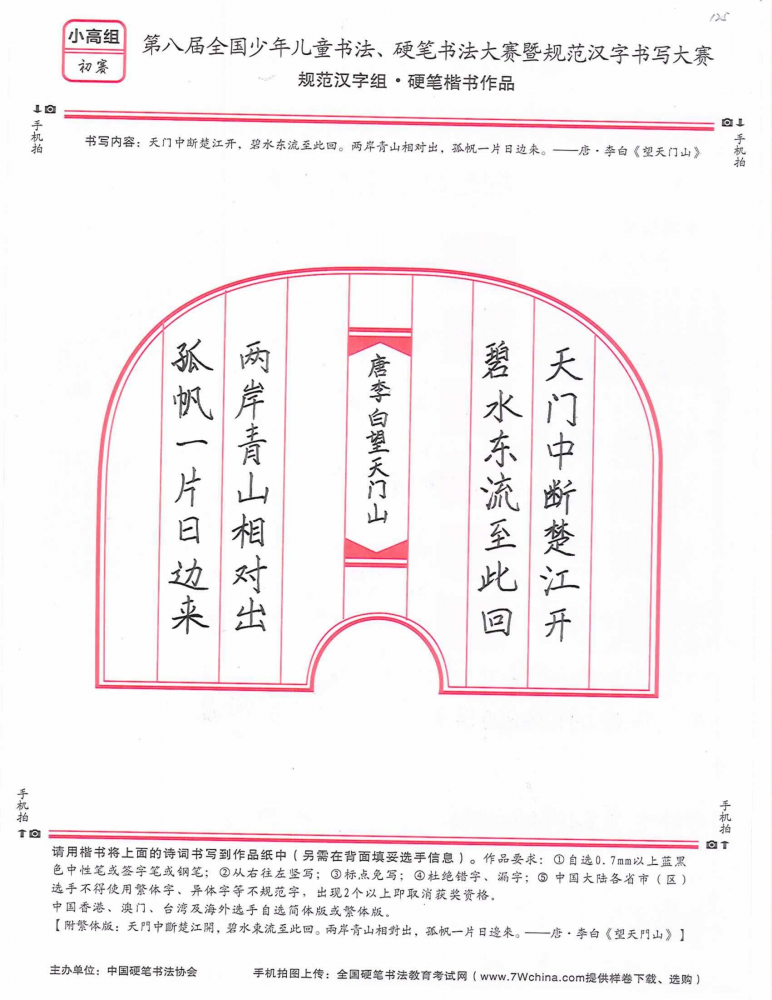 125
小高组
初赛
第八届全国少年儿童书法、硬笔书法大赛暨规范汉字书写大赛
规范汉字组·硬笔楷书作品
手机拍
手机拍
书写内容:天门中断楚江开,碧水东流至此回。两岸青山相对出,孤帆一片日边来。——唐·李白《望天门山》
天门中断楚江开
碧水东流至此回
唐李白望天门山
两岸青山相对出
孤帆一片日边来
手机拍
手机拍
请用楷书将上面的诗词书写到作品纸中(另需在背面填妥选手信息)。作品要求:①自选0.7mm以上蓝黑
色中性笔或签字笔或钢笔;②从右往左竖写;③标点免写;④杜绝错字、漏字;⑤中国大陆各省市(区)
选手不得使用繁体字、异体字等不规范字,出现2个以上即取消获奖资格。
中国香港、澳门、台湾及海外选手自选简体版或繁体版。
【附繁体版:天門中斷楚江開,碧水東流至此回。兩岸青山相對出,孤帆一片日邊來。——唐·李白《望天門山》】
主办单位:中国硬笔书法协会
手机拍图上传:全国硬笔书法教育考试网(www.7Wchina.com提供样卷下载、选购)